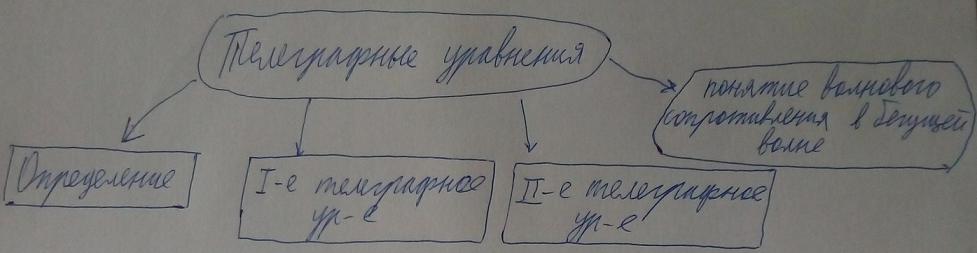 Телеграфные уравнения
понятие волнового
сопротивления в бегущей
волне
Определение
I-е телеграфное
ур-е
II-е телеграфное
ур-е